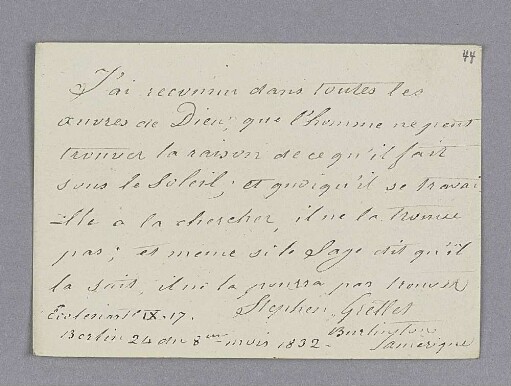 44
J'ai reconnu dans toutes les
œuvres de Dieu, que l'homme ne peut
trouver la raison de ce qu'il fait
sous le Soleil; et quoiqu'il se travai
-ille à la chercher, il ne la trouve
pas; et meme si le Sage dit qu'il
la sait, il ne la pourra pas trouver
Stephen Grellet
Ecclesiast
Burlington
Berlin 24 du 8me mois 1832-
Lamerique